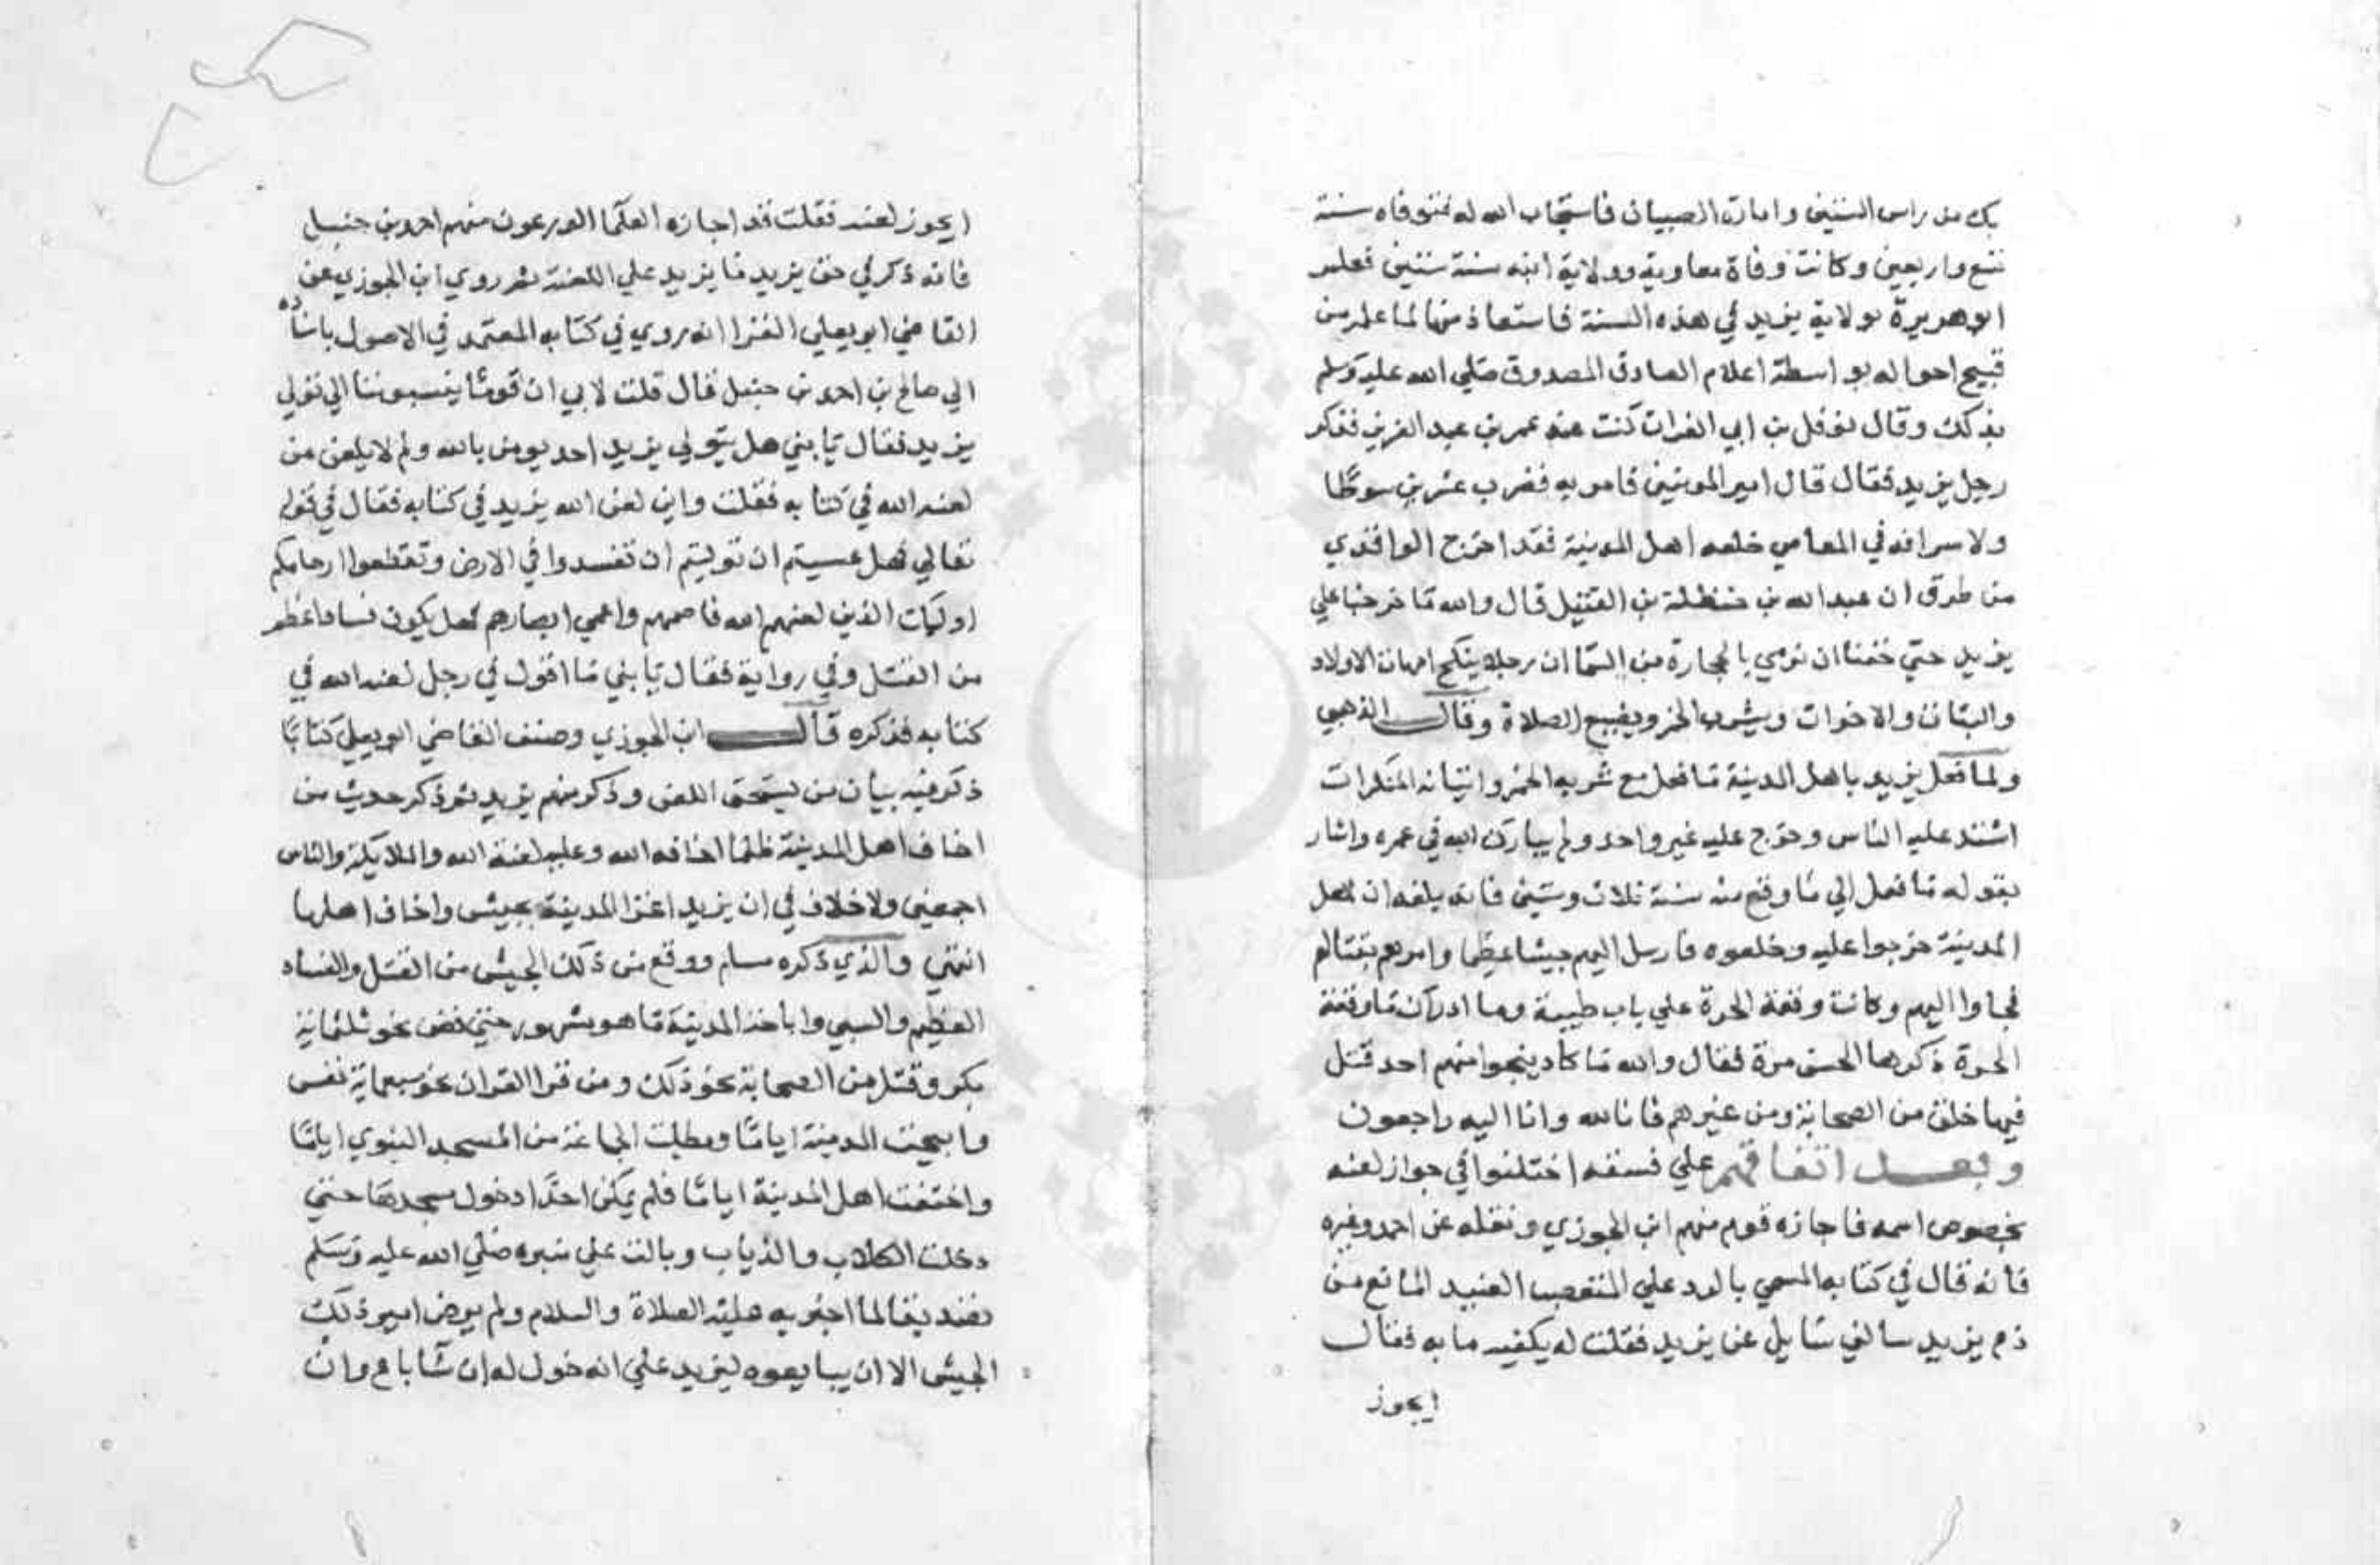 بك من راس الستين وامارة الصبيان فاستجاب الله له فتوفاه سنة
تسع واربعين وكانت وفاة معاوية وولاية ابنه سنة ستين فعلم
ابو هريرة بولاية يزيد في هذه السنة فاستعاذ منها لما علم من
قبيح احواله بواسطة اعلام الصادق المصدوق صلي الله عليه وسلم
بذلك وقال نوفل بن ابي الفرات كنت عند عمر بن عبد العزيز فذكر
رجل يزيد فقال قال امير المومنين فامر به فضرب عشرين سوطا
ولاسرافه في المعاصي خلعه اهل المدينة فقد اخرج الواقدي
من طرق ان عبد الله بن حنظلة بن الغسيل قال والله ما خرجنا علي
يزيد حتي خفنا ان نرمي بالحجارة من السما ان رجلا ينكح امهات الاولاد
والبنات والاخوات ويشرب الخمر ويضيع الصلاة وقال الذهبي
ولما فعل يزيد باهل المدينة ما فعل مع شربه الخمر واتيانه المنكرات
اشتد عليه الناس وخرج عليه غير واحد ولم يبارك الله في عمره واشار
بقوله ما فعل الي ما وقع منه سنة ثلاث وستين فانه بلغه ان اهل
المدينة خرجوا عليه وخلعوه فارسل اليهم جيشا عظيما وامرهم بقتالهم
فجاوا اليهم وكانت وقعة الحرة علي باب طيبة وما ادراك ما وقعة
الحرة ذكرها الحسن مرة فقال والله ما كاد ينجوا منهم احد قتل
فيها خلق من الصحابة ومن غيرهم فانا لله وانا اليه راجعون
وبعد اتفاقهم علي فسقه اختلفوا في جواز لعنه
بخصوص اسمه فاجازه قوم منهم ابن الجوزي ونقله عن احمد وغيره
فانه قال في كتابه المسمي بالرد علي المتعصب العنيد المانع من
ذم يزيد سالني سايل عن يزيد فقلت له يكفيه ما به فقال
ايجوز
ايجوز لعنه فقلت قد اجازه العلما الورعون منهم احمد بن حنبل
فانه ذكر في حق يزيد ما يزيد علي اللعنة ثم روي ابن الجوزي عن
القاضي ابو يعلي الفرا انه روي في كتابه المعتمد في الاصول باسناده
الي صالح بن احمد بن حنبل قال قلت لابي ان قوما ينسبوننا الي تولي
يزيد فقال يا بني هل يتولي يزيد احد يومن بالله ولم لا يلعن من
لعنه الله في كتابه فقلت واين لعن الله يزيد في كتابه فقال في قوله
تعالي فهل عسيتم ان توليتم ان تفسدوا في الارض وتقطعوا ارحامكم
اوليك الذين لعنهم الله فاصمهم واعمي ابصارهم فهل يكون فساد اعظم
من القتل وفي رواية فقال يا بني ما اقول في رجل لعنه الله في
كتابه فذكره قال ابن الجوزي وصنف القاضي ابو يعلي كتابا
ذكر فيه بيان من يستحق اللعن وذكر منهم يزيد ثم ذكر حديث من
اخاف اهل المدينة ظلما اخافه الله وعليه لعنة الله والملايكة والناس
اجمعين ولا خلاف في ان يزيد اغزا المدينة بجيش واخاف اهلها
انتهي والذي ذكره مسلم ووقع من ذلك الجيش من القتل والفساد
العظيم والسبي واباحة المدينة ما هو مشهور حتي فض نحو ثلثماية
بكر وقتل من الصحابة نحو ذلك ومن قرا القران نحو سبعماية نفس
وابيحت المدينة اياما وبطلت الجماعة من المسجد النبوي اياما
واختفت اهل المدينة اياما فلم يمكن احدا دخول مسجدها حتي
دخلت الكلاب والذياب وبالت علي منبره صلي الله عليه وسلم
تصديقا لما اخبر به عليه الصلاة والسلام ولم يرض امير ذلك
الجيش الا ان يبايعوه ليزيد علي انه خول له ان شا باع وان